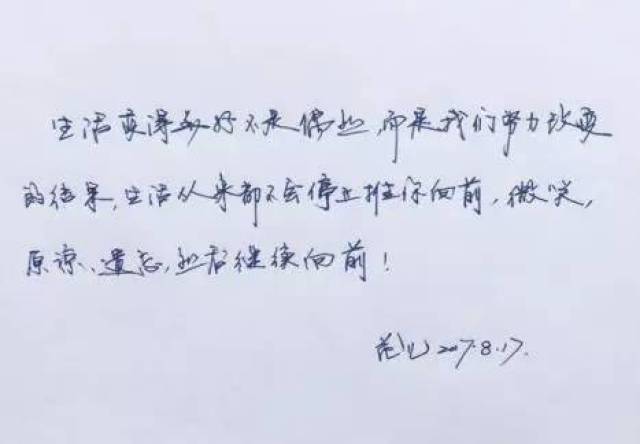 生活变得美好不是偶然,而是我们努力改变
的结果,生活从来都不会停止推你向前,微笑,
原谅、遗忘,然后继续向前!
2017.8.17.